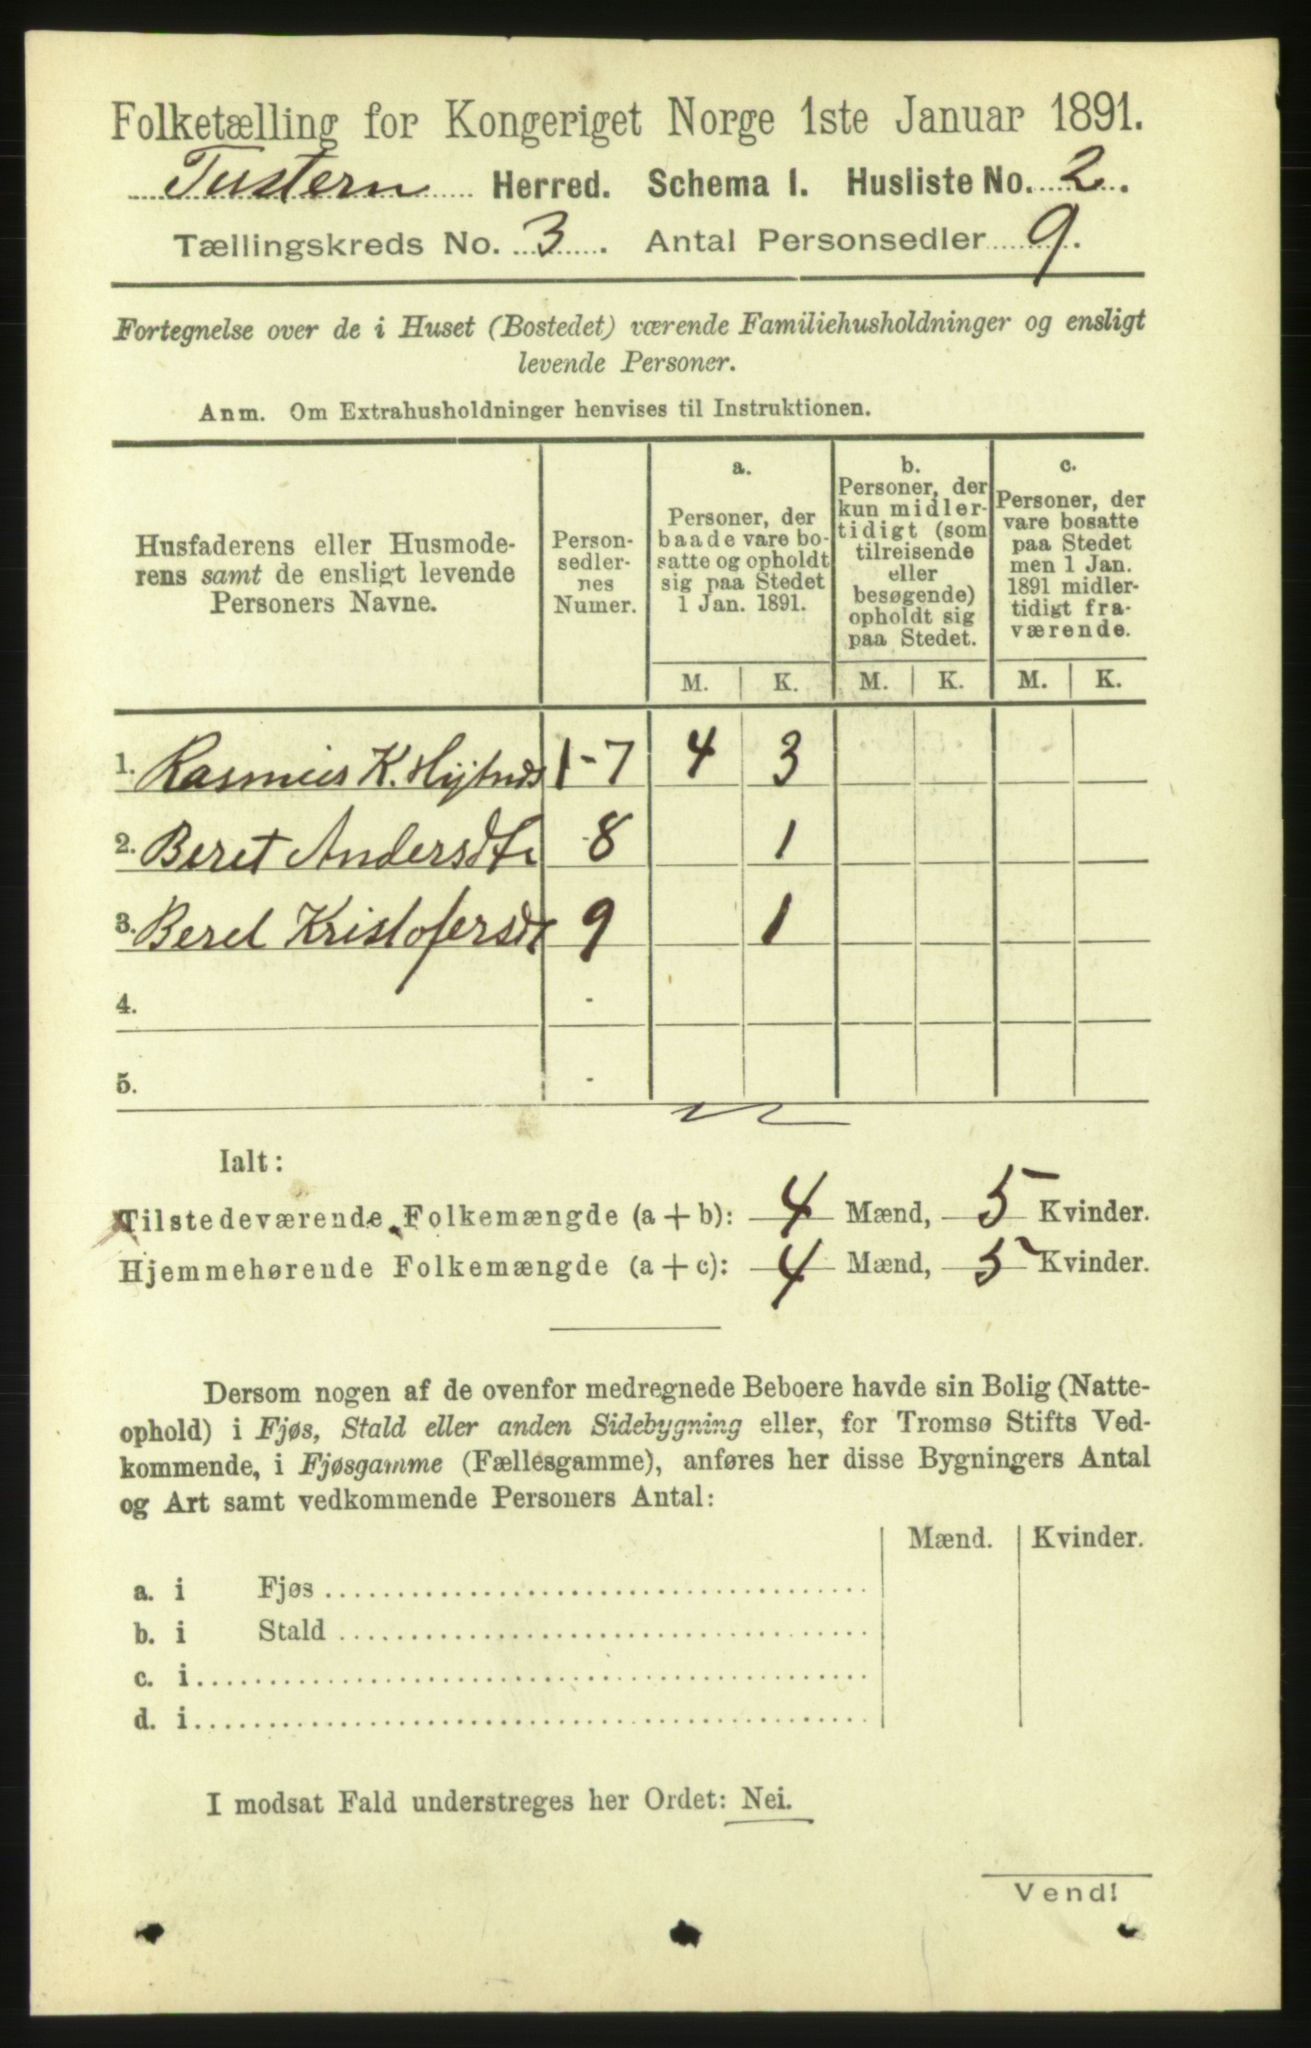 Folketælling for Kongeriget Norge 1ste Januar 1891.
Tustern Herred. Schema I. Husliste No. 2.
Tællingskreds No. 3. Antal Personsedler 9.
Fortegnelse over de i Huset (Bostedet) værende Familiehusholdninger og ensligt
levende Personer.
Anm. Om Extrahusholdninger henvises til Instruktionen.
Husfaderens eller Husmode-
rens samt de ensligt levende
Personers Navne.
Person-
sedler-
nes
Numer.
a.
Personer, der
baade vare bo-
satte og opholdt
sig paa Stedet
1 Jan. 1891.
b.
Personer, der
kun midler-
tidigt (som
tilreisende
eller
besøgende)
opholdt sig
paa Stedet.
c.
Personer, der
vare bosatte
paa Stedet
men 1 Jan.
1891 midler-
tidigt fra-
værende.
M. K. M. K. M. K.
1. Rasmus K. 1-7 4 3
2. Beret Andersdt. 8 1
3. Beret Kristofersdt 9 1
4. -
5. -
Ialt:
Tilstedeværende Folkemængde (a+b): 4 Mænd, 5 Kvinder.
Hjemmehørende Folkemængde (a+c): 4 Mænd, 5 Kvinder.
Dersom nogen af de ovenfor medregnede Beboere havde sin Bolig (Natte-
ophold) i Fjøs, Stald eller anden Sidebygning eller, for Tromsø Stifts Ved-
kommende, i Fjøsgamme (Fællesgamme), anføres her disse Bygningers Antal
og Art samt vedkommende Personers Antal:
Mænd. Kvinder.
a. i Fjøs
b. i Stald
c. i
d. i
I modsat Fald understreges her Ordet: Nei.
Vend!